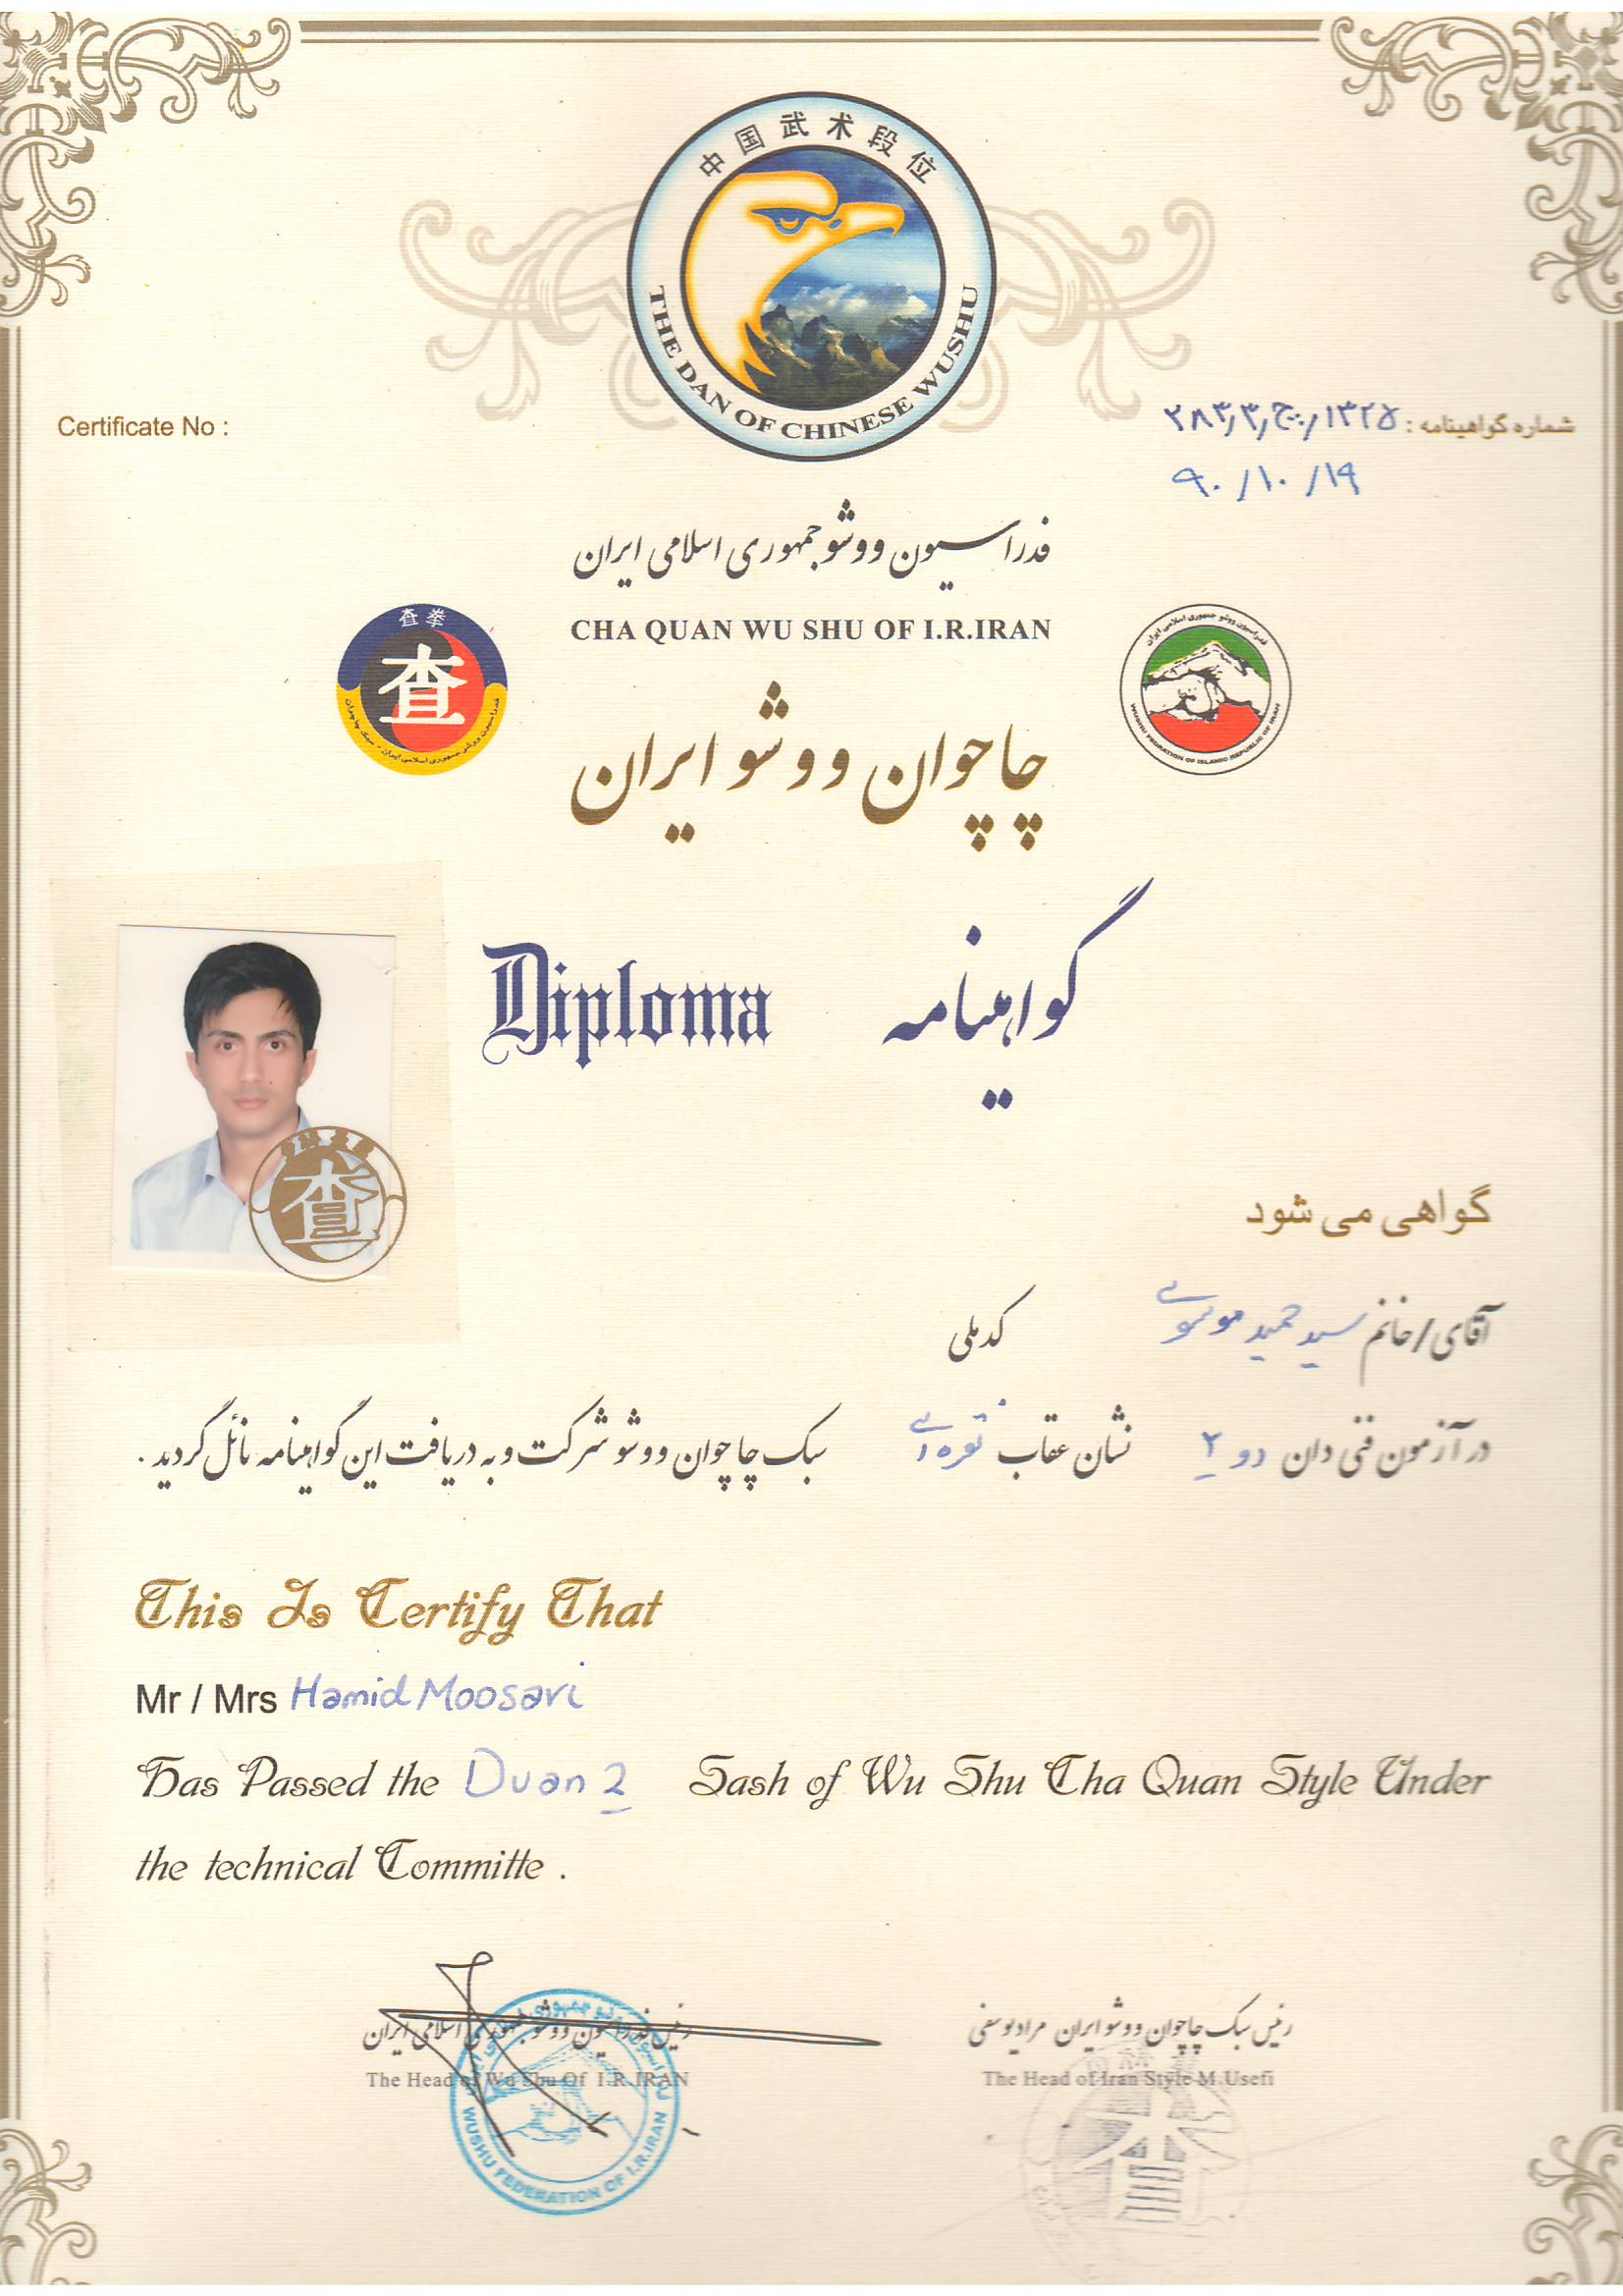 中国武术段位
THE DAN OF CHINESE WUSHU
Certificate No :
شماره گواهینامه : ۲۸۳٫۳٫چ/۱۳۲۵
۹۰/۱۰/۱۹
فدراسیون ووشو جمهوری اسلامی ایران
查拳
查
فدراسیون ووشو جمهوری اسلامی ایران - سبک چاچوان
CHA QUAN WU SHU OF I.R.IRAN
فدراسیون ووشو جمهوری اسلامی ایران
WUSHU FEDRATION OF ISLAMIC REPUBLIC OF IRAN
چاچوان ووشو ایران
Diploma گواهینامه
查
گواهی می شود
آقای/خانم سید حمید موسوی کد ملی
در آزمون فنی دان دو ۲ نشان عقاب نقره ای سبک چاچوان ووشو شرکت و به دریافت این گواهینامه نائل گردید .
This Is Certify That
Mr / Mrs Hamid Moosavi
Has Passed the Duan 2 Sash of Wu Shu Cha Quan Style Under
the technical Committe .
رئیس فدراسیون ووشو جمهوری اسلامی ایران
The Head of Wu Shu Of I.R.IRAN
WUSHU FEDERATION OF I.R.IRAN
رئیس سبک چاچوان ووشو ایران مراد یوسفی
The Head of Iran Style M.Usefi
查